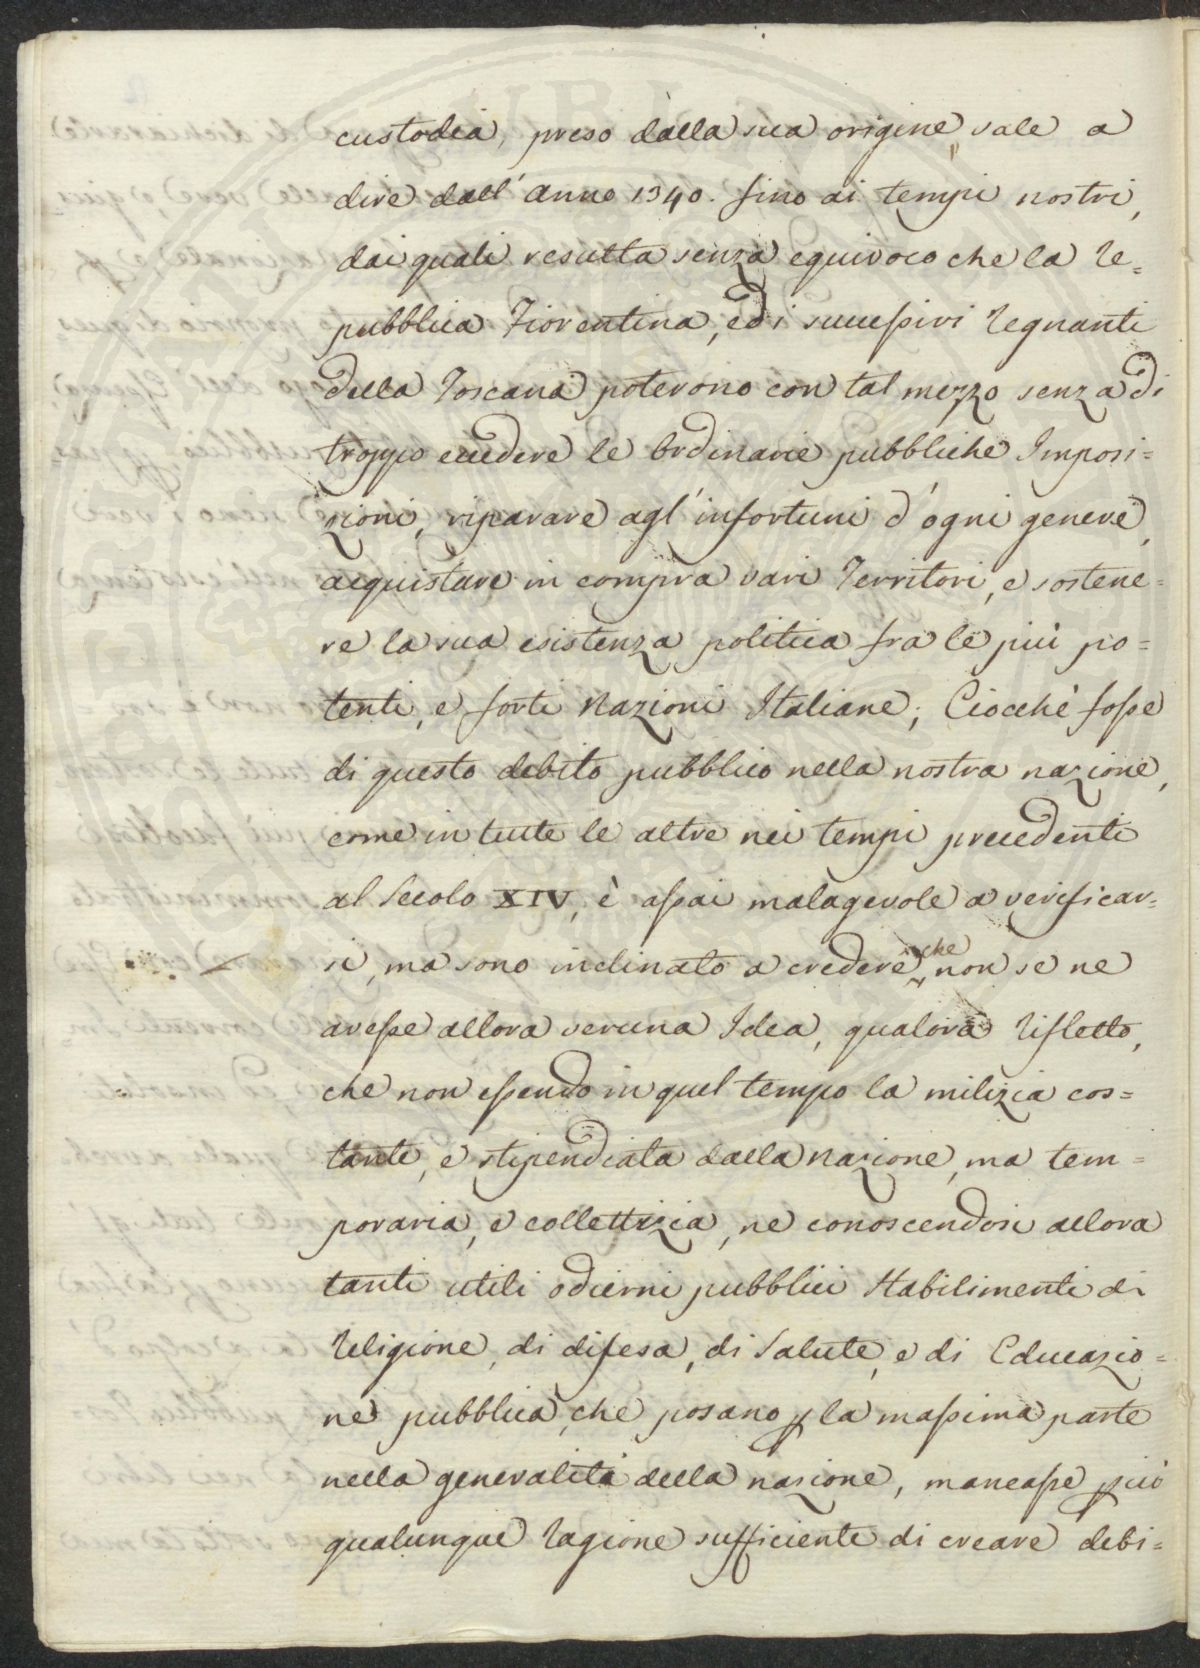 custodia, preso dalla sua origine, vale a
dire dall'anno 1340. fino ai tempi nostri,
dai quali resulta senza equivoco che la Re=
pubblica Fiorentina, ed i successivi Regnanti
della Toscana poterono con tal mezzo senza di
troppo eccedere le Ordinarie pubbliche Imposi=
zioni, riparare agl'infortuni d'ogni genere,
acquistare in compra vari Territori, e sostene=
re la sua esistenza politica fra le più po=
tenti, e forti Nazioni Italiane; Ciocchè fosse
di questo debito pubblico nella nostra nazione,
come in tutte le altre nei tempi precedenti
al Secolo XIV, è assai malagevole a verificar=
si, ma sono inclinato a credere, che non se ne
avesse allora veruna Idea, qualora rifletto,
che non essendo in quel tempo la milizia cos=
tante, e stipendiata dalla nazione, ma tem=
poraria, e collettizia, ne conoscendosi allora
tanti utili odierni pubblici Stabilimenti di
Religione, di difesa, di Salute, e di Educazio=
ne pubblica, che posano p la massima parte
nella generalità della nazione, mancasse p ciò
qualunque ragione sufficiente di creare debi=